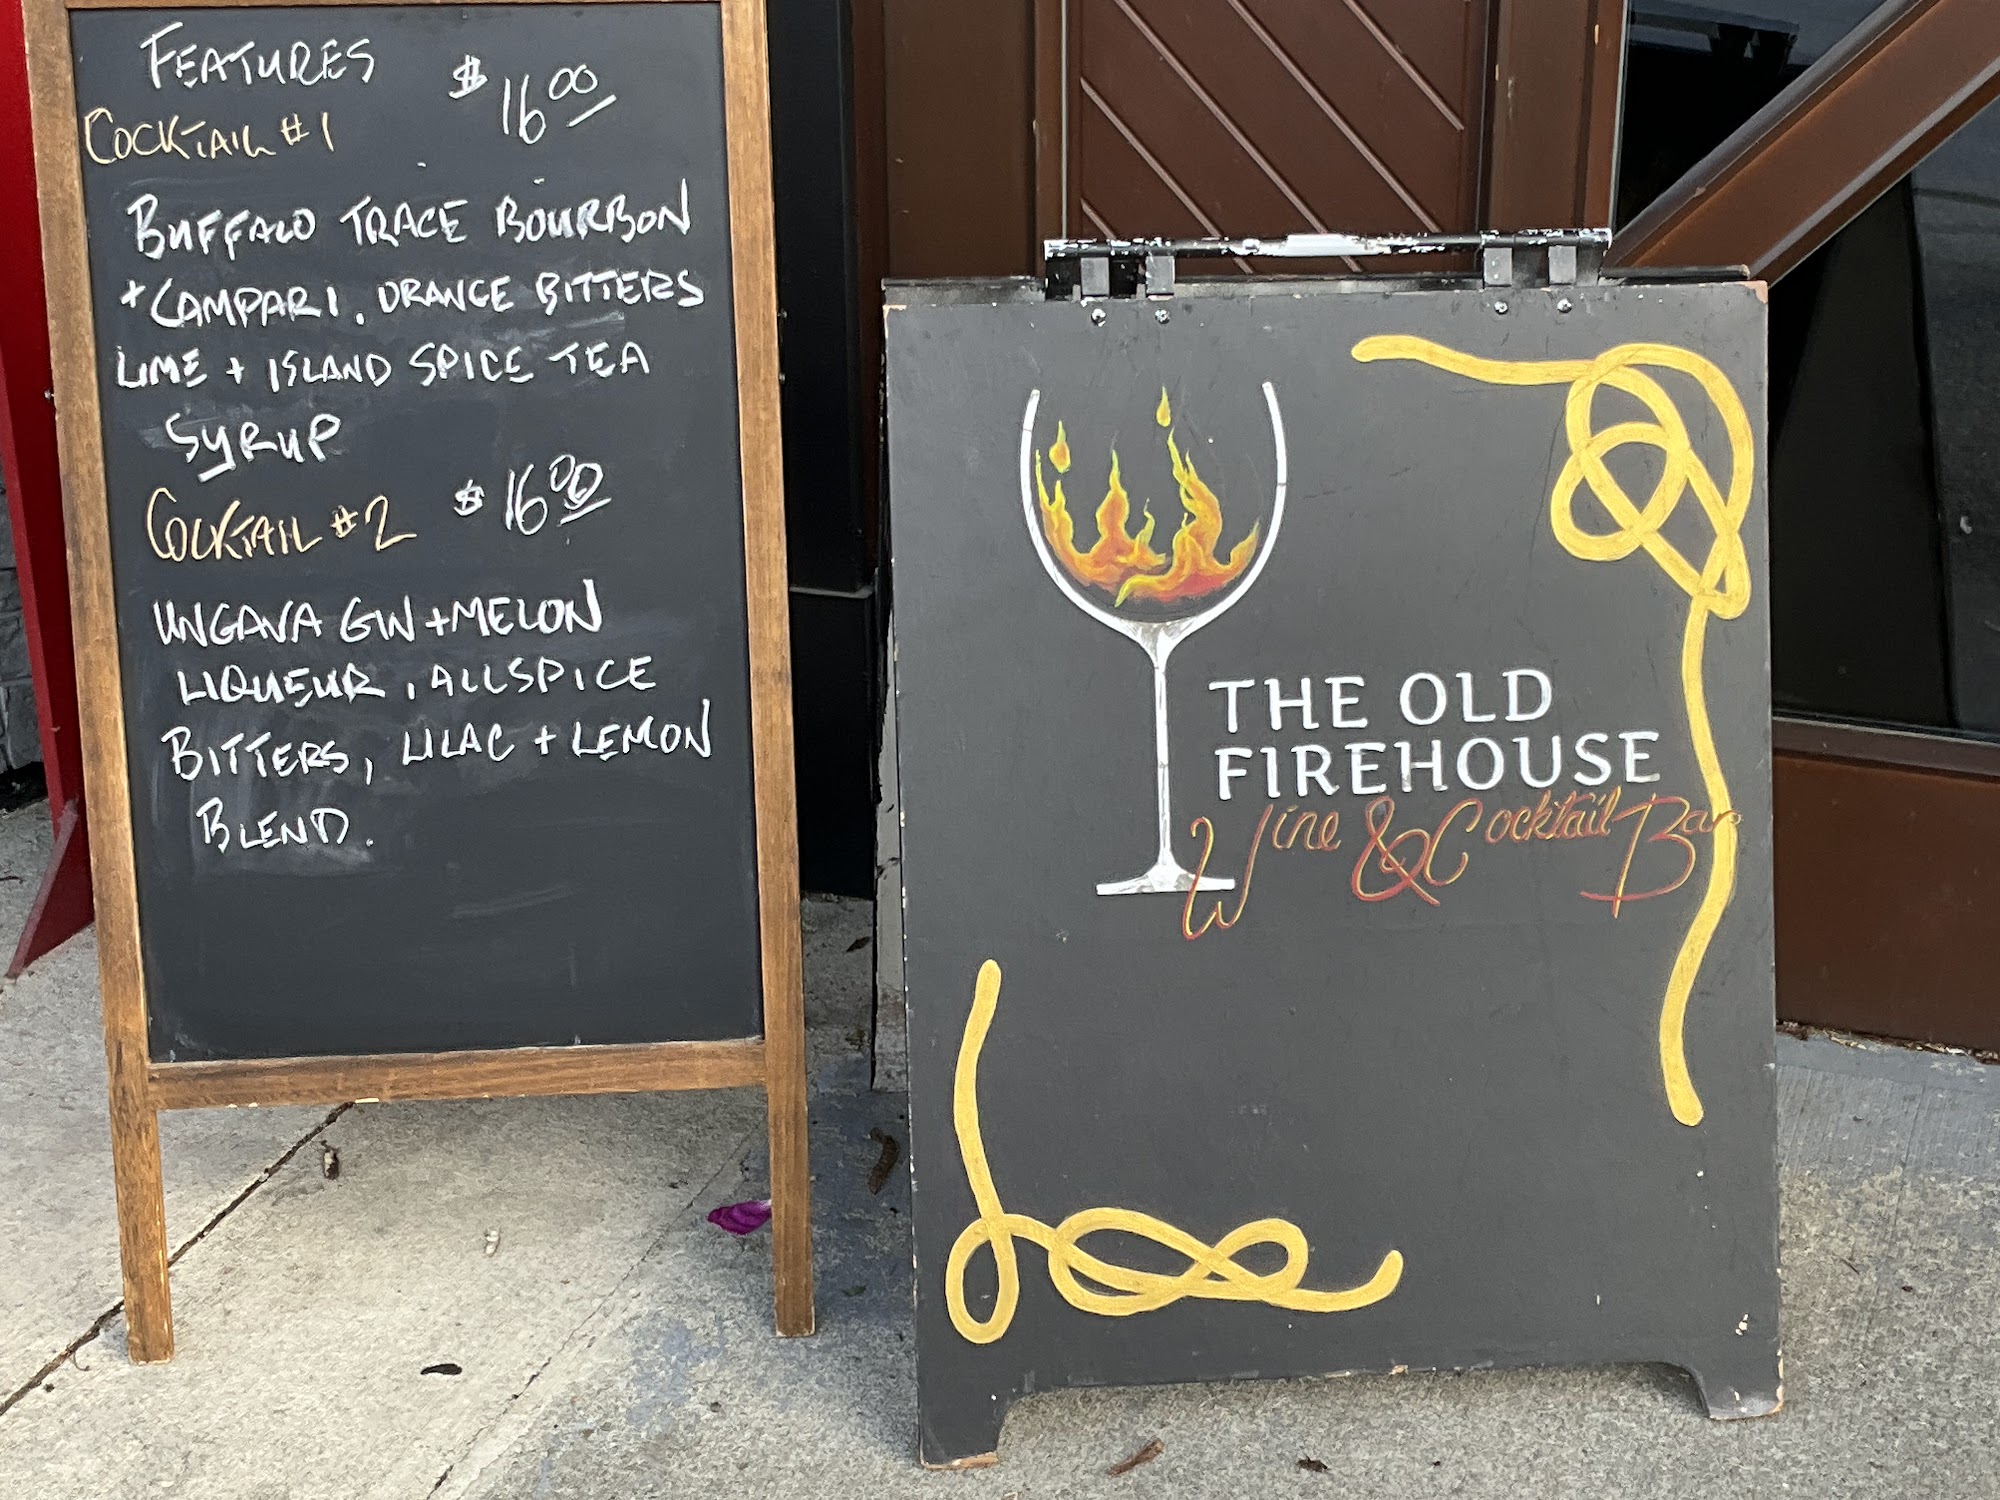 FEATURES
COCKTAIL #1 $16.00
BUFFALO TRACE BOURBON
+ CAMPARI, ORANGE BITTERS
LIME + ISLAND SPICE TEA
SYRUP
COCKTAIL #2 $16.00
UNGAVA GIN + MELON
LIQUEUR, ALLSPICE
BITTERS, LILAC + LEMON
BLEND.
THE OLD
FIREHOUSE
Wine & Cocktail Bar